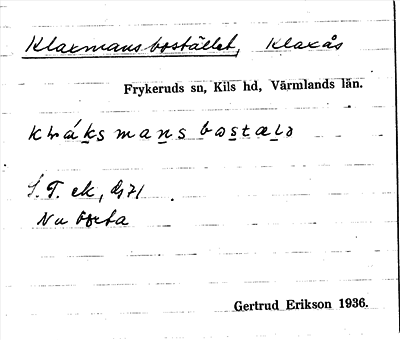 Klaxmansbostället, Klaxås
Frykeruds sn, Kils hd, Värmlands län.
mans
S. T. ek,
Nu borta
Gertrud Erikson 1936.